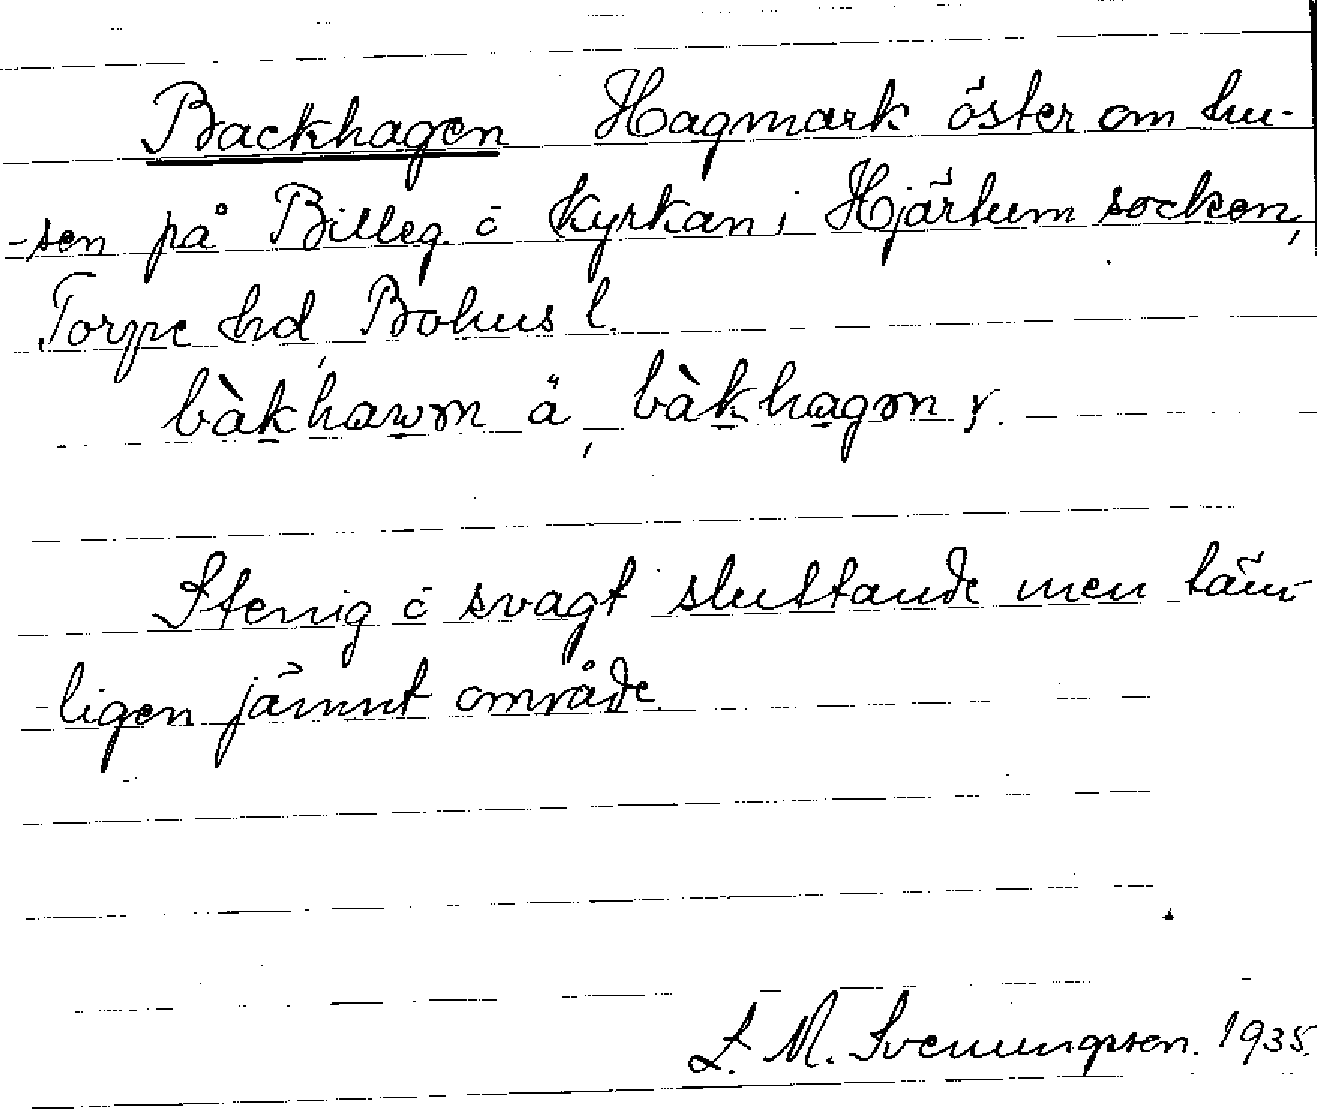 Backhagen Hagmark öster om hu-
-sen på Billeg. o kyrkan i Hjärtum socken,
Torpe hd, Bohus l.
bàkhawən ä, bàkhagən y.
Stenig o svagt sluttande men täm-
-ligen jämnt område.
L. M. Svenungsson. 1935.